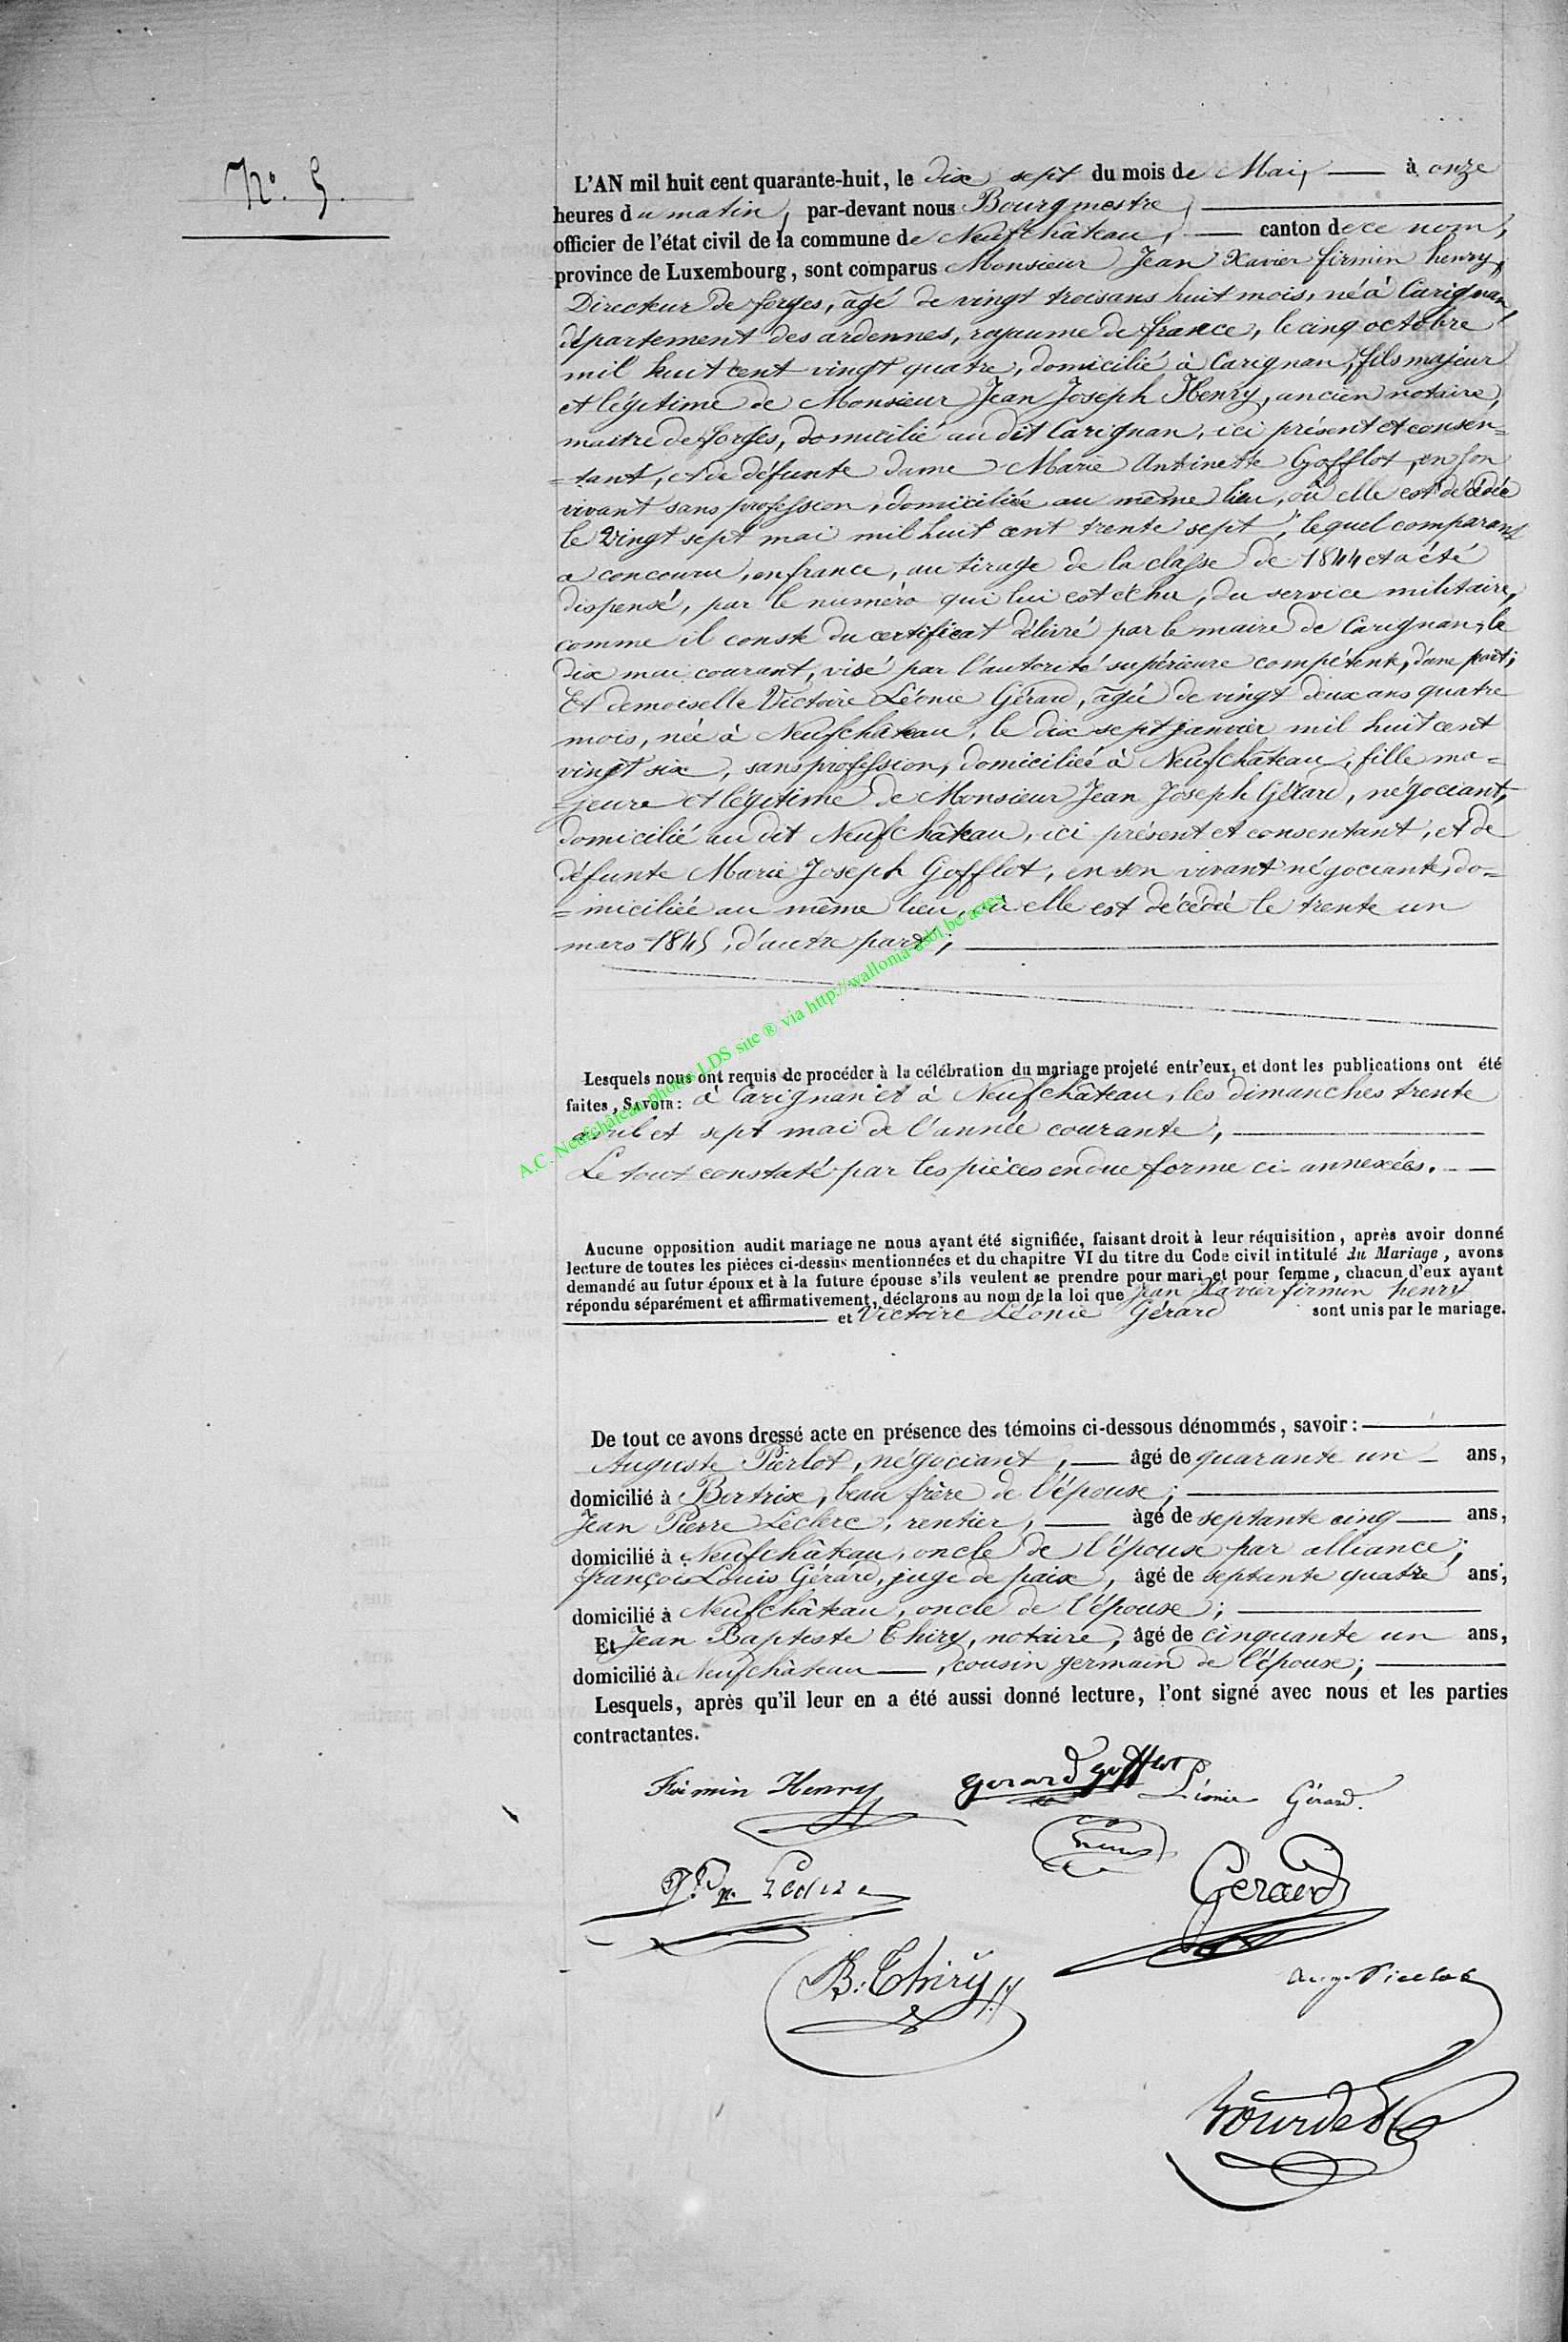 N° 5.
L'AN mil huit cent quarante-huit, le dix sept du mois de Mai, à onze
heures du matin, par-devant nous Bourgmestre,
officier de l'état civil de la commune de Neufchâteau, canton de ce nom,
province de Luxembourg, sont comparus Monsieur Jean Xavier firmin henry,
Directeur de forges, âgé de vingt trois ans huit mois, né à Carignan
département des ardennes, royaume de france, le cinq octobre
mil huit cent vingt quatre, domicilié à Carignan, fils majeur
et légitime de Monsieur Jean Joseph Henry, ancien notaire,
maitre de forges, domicilié au dit Carignan, ici présent et consen=
=tant, et de défunte dame Marie Antinette Gofflot, en son
vivant sans profession, domiciliée au même lieu, où elle est décédée
le Vingt sept mai mil huit cent trente sept, lequel comparant
a concouru, en france, au tirage de la classe de 1844 et a été
dispensé, par le numéro qui lui est échu, du service militaire,
comme il conste du certificat délivré par le maire de Carignan, le
dix mai courant, visé par l'autorité supérieure compétente, d'une part;
Et demoiselle Victoire Léonie Gérard, âgée de vingt deux ans quatre
mois, née à Neufchâteau, le dix sept janvier mil huit cent
vingt six, sans profession, domiciliée à Neufchâteau, fille ma=
=jeure et légitime de Monsieur Jean Joseph Gérard, négociant,
domicilié au dit Neufchâteau, ici présent et consentant, et de
défunte Marie Joseph Gofflot, en son vivant négociante, do=
=miciliée au même lieu, où elle est décédée le trente un
mars 1845, d'autre part;
A.C. Neufchâteau photos LDS site ® via http://wallonia-asbl.be/actes
Lesquels nous ont requis de procéder à la célébration du mariage projeté entr'eux, et dont les publications ont été
faites, SAVOIR: à Carignan et à Neufchâteau, les dimanches trente
avril et sept mai de l'année courante,
Le tout constaté par les pièces en due forme ci-annexées.
Aucune opposition audit mariage ne nous ayant été signifiée, faisant droit à leur réquisition, après avoir donné
lecture de toutes les pièces ci-dessus mentionnées et du chapitre VI du titre du Code civil intitulé du Mariage, avons
demandé au futur époux et à la future épouse s'ils veulent se prendre pour mari et pour femme, chacun d'eux ayant
répondu séparément et affirmativement, déclarons au nom de la loi que Jean Xavier firmin henry
et Victoire Léonie Gérard sont unis par le mariage.
De tout ce avons dressé acte en présence des témoins ci-dessous dénommés, savoir:
Auguste Pierlot, négociant, âgé de quarante un ans,
domicilié à Bertrix, beau frère de l'épouse;
Jean Pierre Leclerc, rentier, âgé de septante cinq ans,
domicilié à Neufchâteau, oncle de l'épouse par alliance;
françois Louis Gérard, juge de paix, âgé de septante quatre ans,
domicilié à Neufchâteau, oncle de l'épouse;
Et Jean Baptiste Thiry, notaire, âgé de cinquante un ans,
domicilié à Neufchâteau, cousin germain de l'épouse;
Lesquels, après qu'il leur en a été aussi donné lecture, l'ont signé avec nous et les parties
contractantes.
Firmin Henry gerard gofflot Léonie Gérard.
Gerard
B. Thiry
Aug. Pierlot